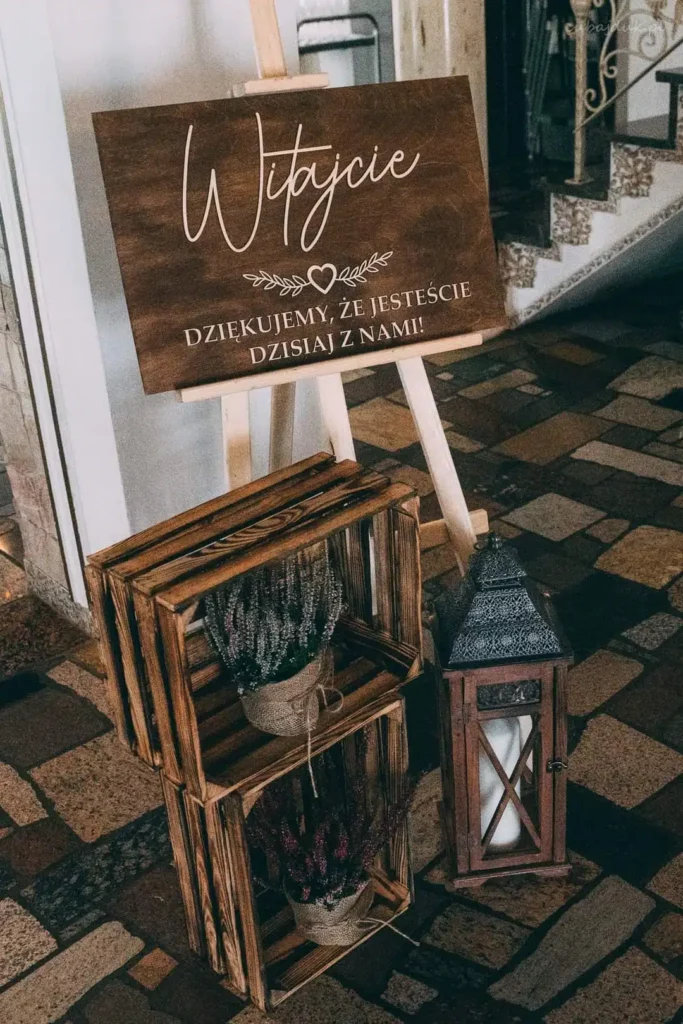 Witajcie
DZIĘKUJEMY, ŻE JESTEŚCIE
DZISIAJ Z NAMI!